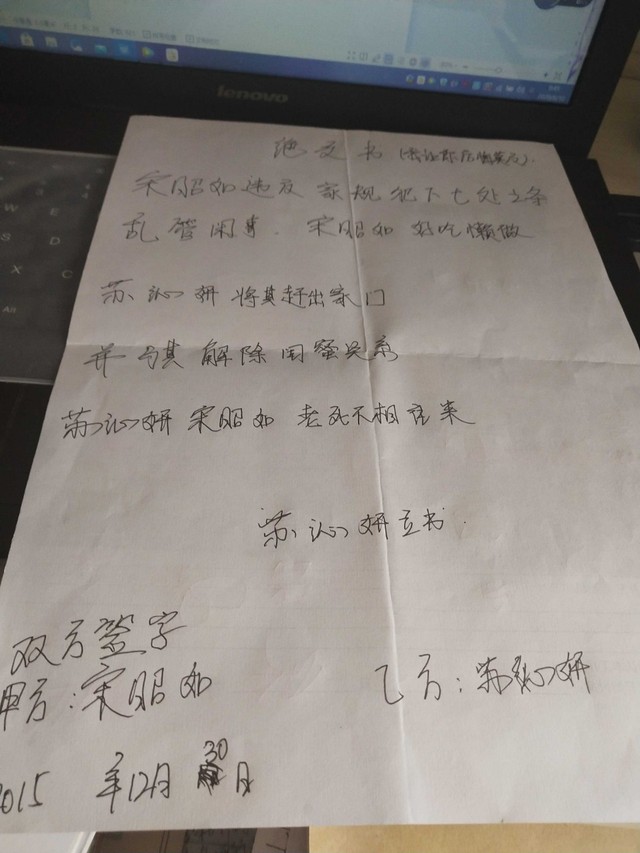 lenovo
绝交书
宋昭如违反家规犯下七处之条
乱管闲事. 宋昭如 好吃懒做
苏沁妍将其赶出家门
并与其解除闺蜜关系
苏沁妍 宋昭如 老死不相往来
苏沁妍立书.
双方签字
甲方:宋昭如
乙方:苏沁妍
2015 年12月30日